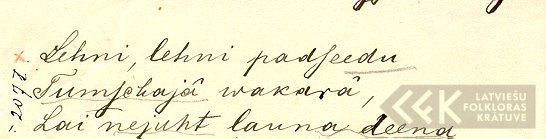 Lehni, lehni padseedu
Tumschajâ wakarâ,
Lai nejuht launa deena
LATVIEŠU
FOLKLORAS
KRĀTUVE